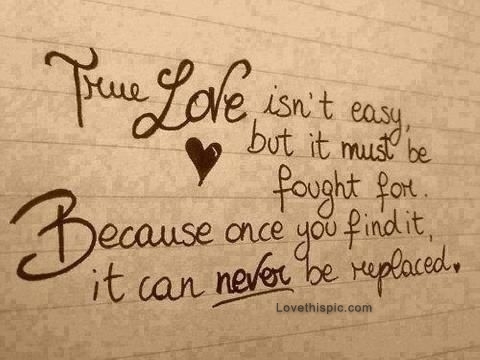 True Love isn't easy,
but it must be
fought for.
Because once you find it,
it can never be replaced.
Lovethispic.com